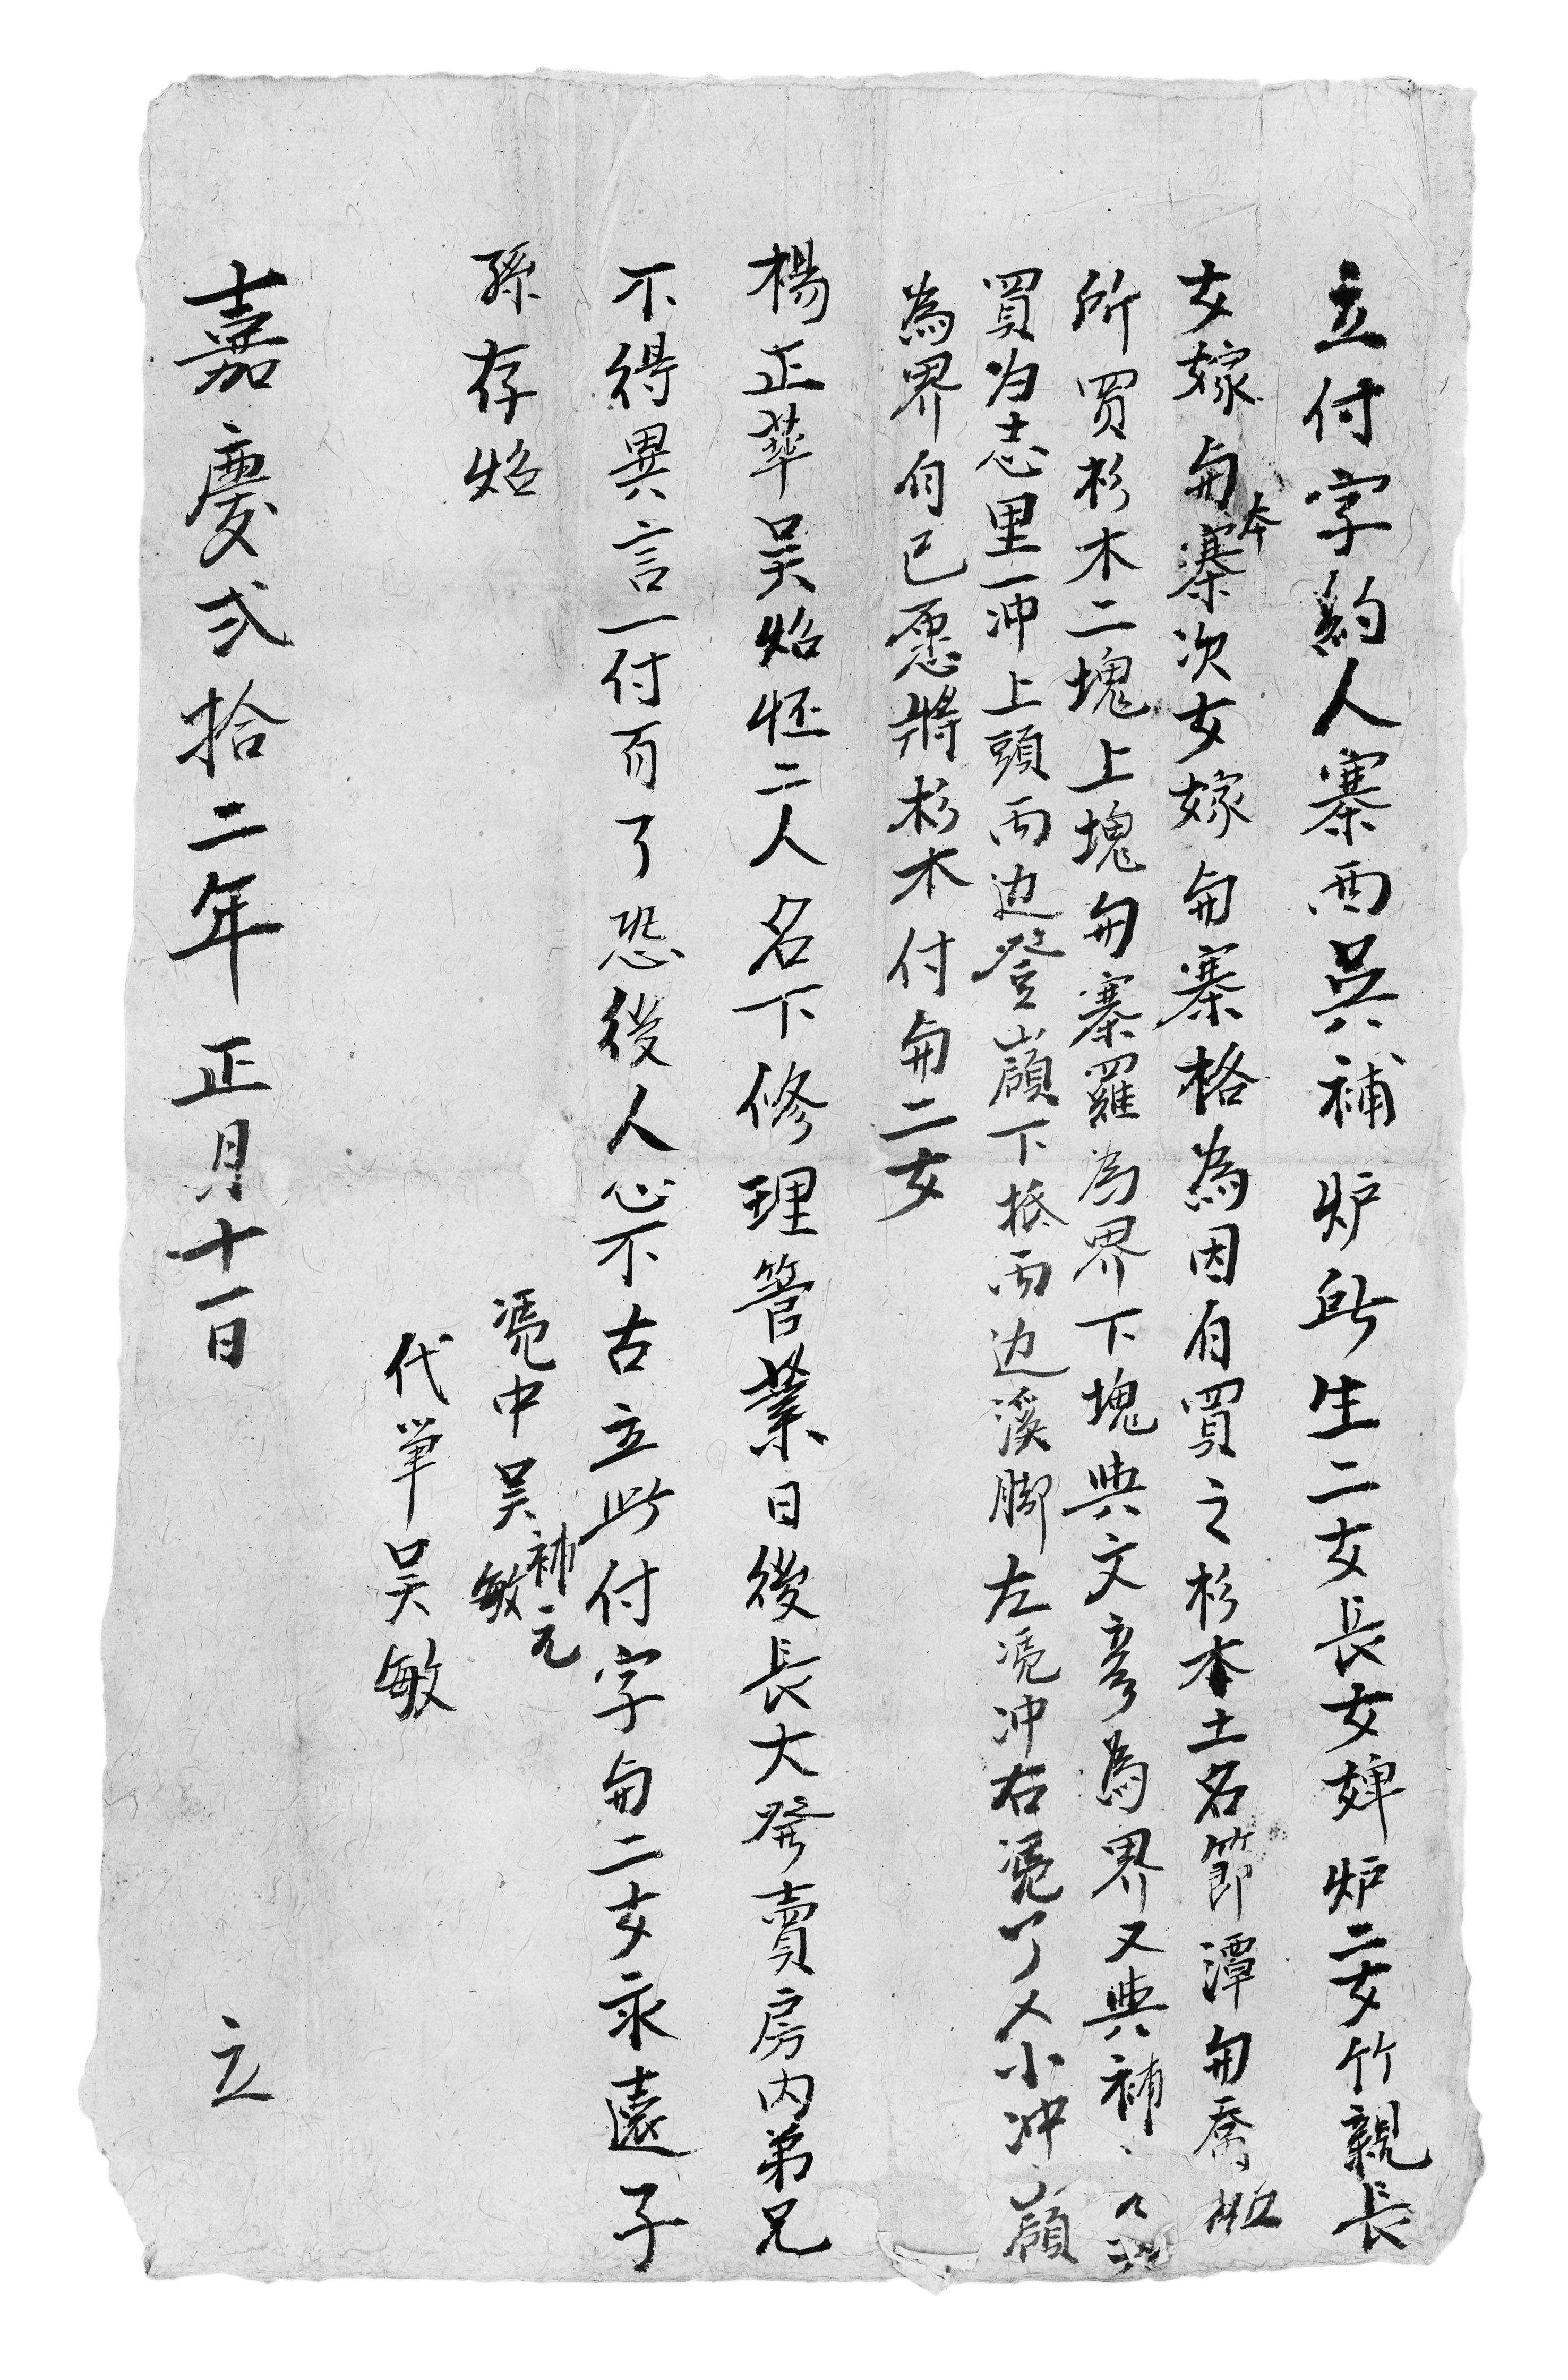 立付字約人寨西吳補炉所生二女長女婢炉二女竹親長
女嫁與本寨次女嫁與寨格為因自買之杉木土名節潭與喬
所買杉木二塊上塊與寨羅為界下塊與文彥為界又與補
買为志里一冲上頭両边登嶺下抵両边溪脚左凴冲右凴了乂小冲嶺
為界自己愿將杉木付與二女
楊正華吳炲怌二人名下修理管業日後長大發賣房内弟兄
不得異言一付百了恐後人心不古立此付字與二女永遠子
孫存炤
凴中吳補元 敏
代筆吳敏
嘉慶弍拾二年正月十一日 立